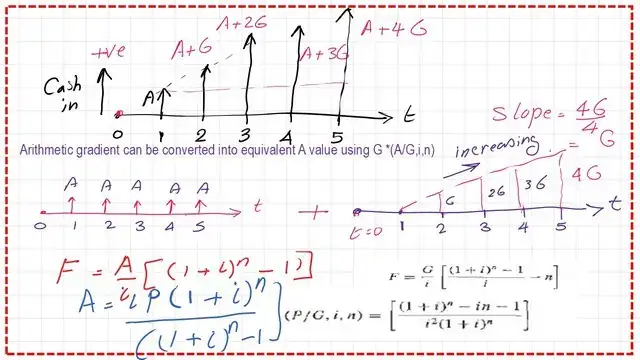 A+4G
A+2G
+ve
A+G
A+3G
Cash
in
A
t
0 1 2 3 4 5
Slope = 4G/4
= G
Arithmetic gradient can be converted into equivalent A value using G *(A/G,i,n)
increasing
A A A A A
t
0 1 2 3 4 5
+
G 2G 3G 4G
t
t=0 1 2 3 4 5
F = A/i [(1+i)^n - 1)]
F = G/i [((1 + i)^n − 1)/i − n]
A = iP(1+i)^n/((1+i)^n-1)]
(P/G, i, n) = [((1 + i)^n − in − 1)/(i^2(1 + i)^n)]